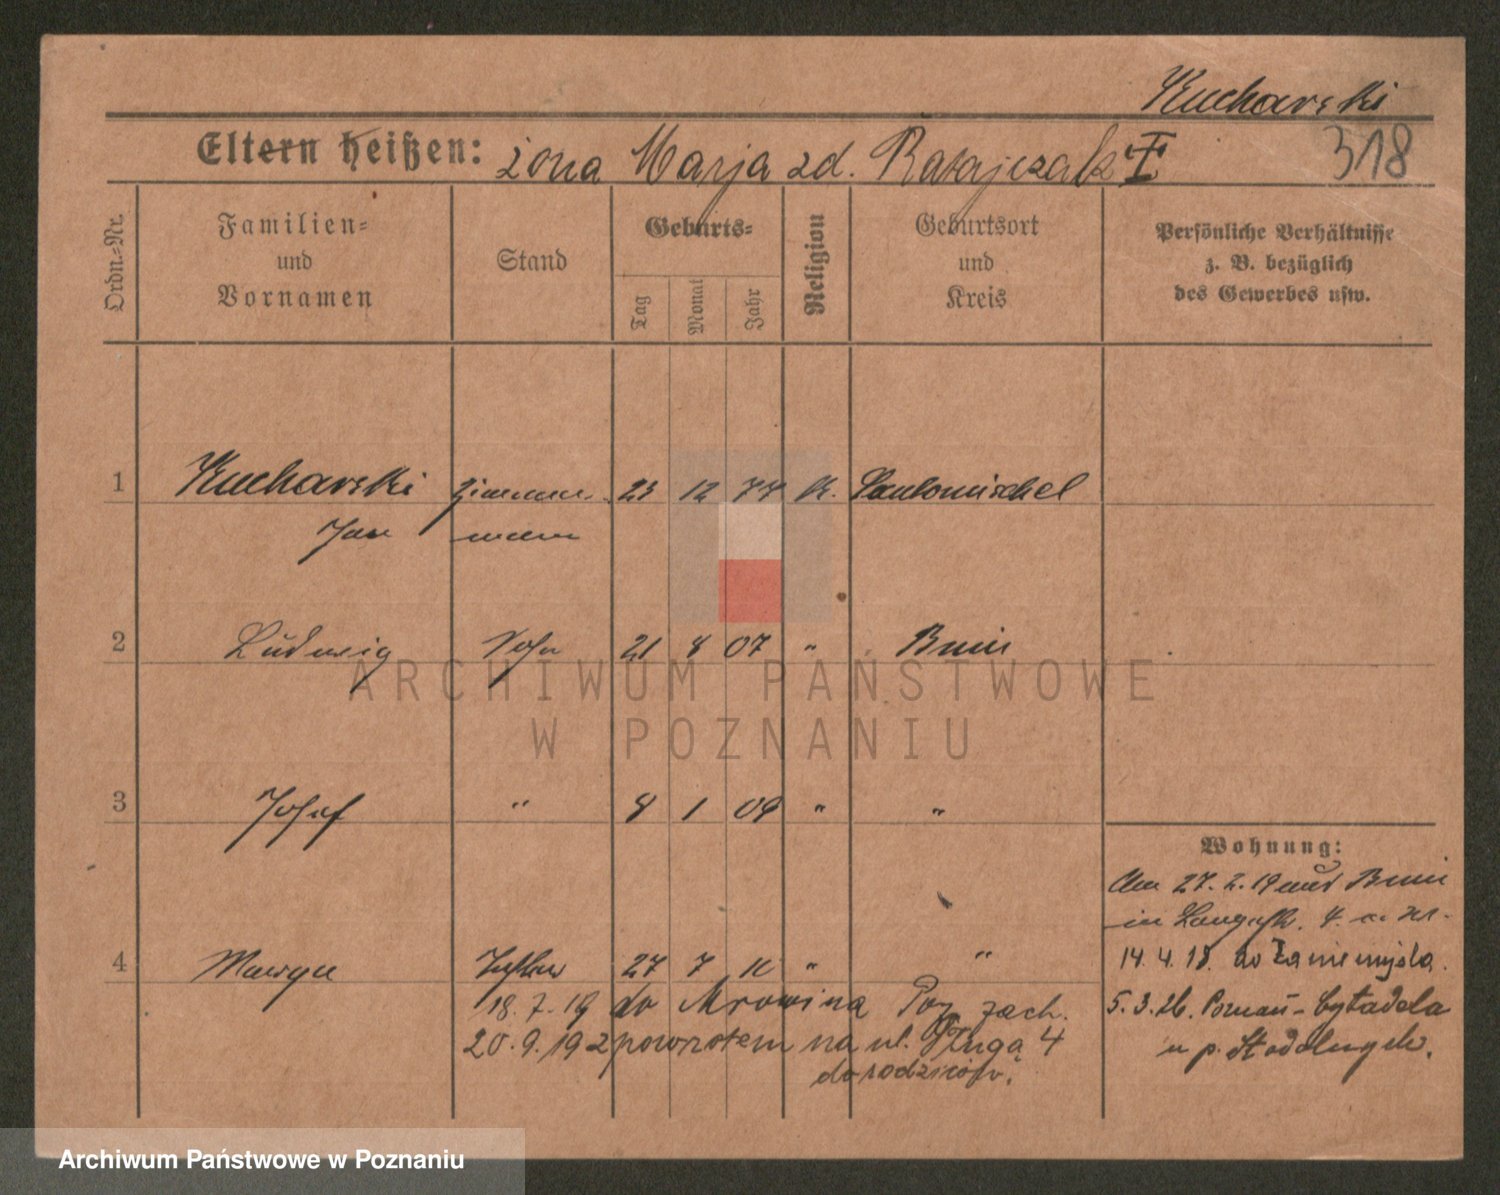 Kucharski
318
Eltern heißen: żona Marja zd. Ratajczak I
Ordn.-Nr.
Familien-
und
Vornamen
Stand
Geburts-
Tag
Monat
Jahr
Religion
Geburtsort
und
Kreis
Persönliche Verhältnisse
z. B. bezüglich
des Gewerbes usw.
1 Kucharski Zimmer- 23 12 77 K. Santomischel
Jan mann
2 Ludwig Sohn 21 8 07 " Bnin
3 Josef " 8 1 09 " "
Wohnung:
Am 27. 2. 19 aus Bnin
in
14. 4. 18. do Zaniemyśla.
4 Tochter 27 7 " "
18. 7. 19 do Mrowina Poz zach.
5. 3. 26. Poznań - Cytadela
20. 9. 192 powrotem na ul. Długą 4
u p.
do rodziców.
ARCHIWUM PAŃSTWOWE
W POZNANIU
Archiwum Państwowe w Poznaniu